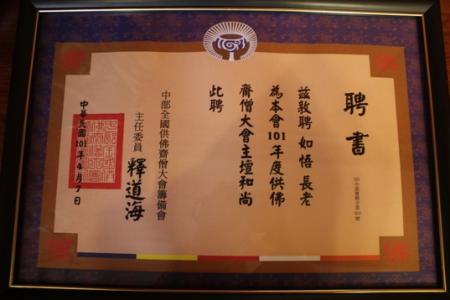 聘書
茲敦聘 如悟 長老
為本會101年度供佛
齋僧大會主壇和尚
此聘
中部全國供佛齋僧大會籌備會
主任委員 釋道海
中華民國101年4月7日